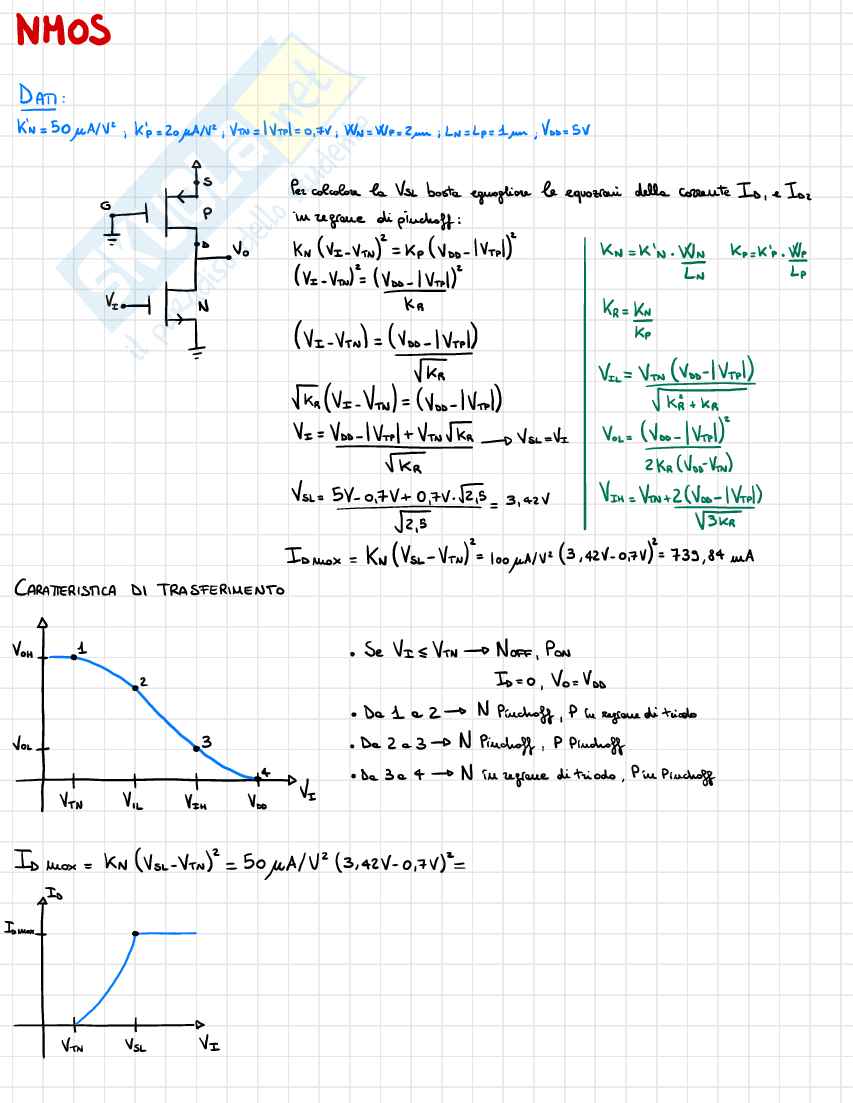 NMOS
DATI:
K'N = 50 μA/V², K'P = 20 μA/V², VTN = |VTP| = 0,7V, WN = WP = 2 μm; LN = LP = 1 μm, VDD = 5V
G
S
P
D
Vo
VI
N
Per calcolare la VSL basta eguagliare le equazioni della corrente ID1 e ID2
in regione di pinchoff:
KN (VI - VTN)² = KP (VDD - |VTP|)²
(VI - VTN)² = (VDD - |VTP|)² / KR
(VI - VTN) = (VDD - |VTP|) / √KR
√KR (VI - VTN) = (VDD - |VTP|)
VI = VDD - |VTP| + VTN √KR / √KR → VSL = VI
VSL = 5V - 0,7V + 0,7V · √2,5 / √2,5 = 3,42V
KN = K'N · WN / LN KP = K'P · WP / LP
KR = KN / KP
VIL = VTN (VDD - |VTP|) / √KR² + KR
VOL = (VDD - |VTP|)² / 2KR (VDD - VTN)
VIH = VTN + 2(VDD - |VTP|) / √3KR
ID max = KN (VSL - VTN)² = 100 μA/V² (3,42V - 0,7V)² = 739,84 mA
CARATTERISTICA DI TRASFERIMENTO
VOH
1
2
VOL
3
4
VI
VTN VIL VIH VDD
• Se VI ≤ VTN → NOFF, PON
ID = 0, VO = VDD
• Da 1 a 2 → N Pinchoff, P in regione di triodo
• Da 2 a 3 → N Pinchoff, P Pinchoff
• Da 3 a 4 → N in regione di triodo, P in Pinchoff
ID max = KN (VSL - VTN)² = 50 μA/V² (3,42V - 0,7V)² =
ID
ID max
VTN VSL VI
SKUOLA.net
il paradiso dello studente